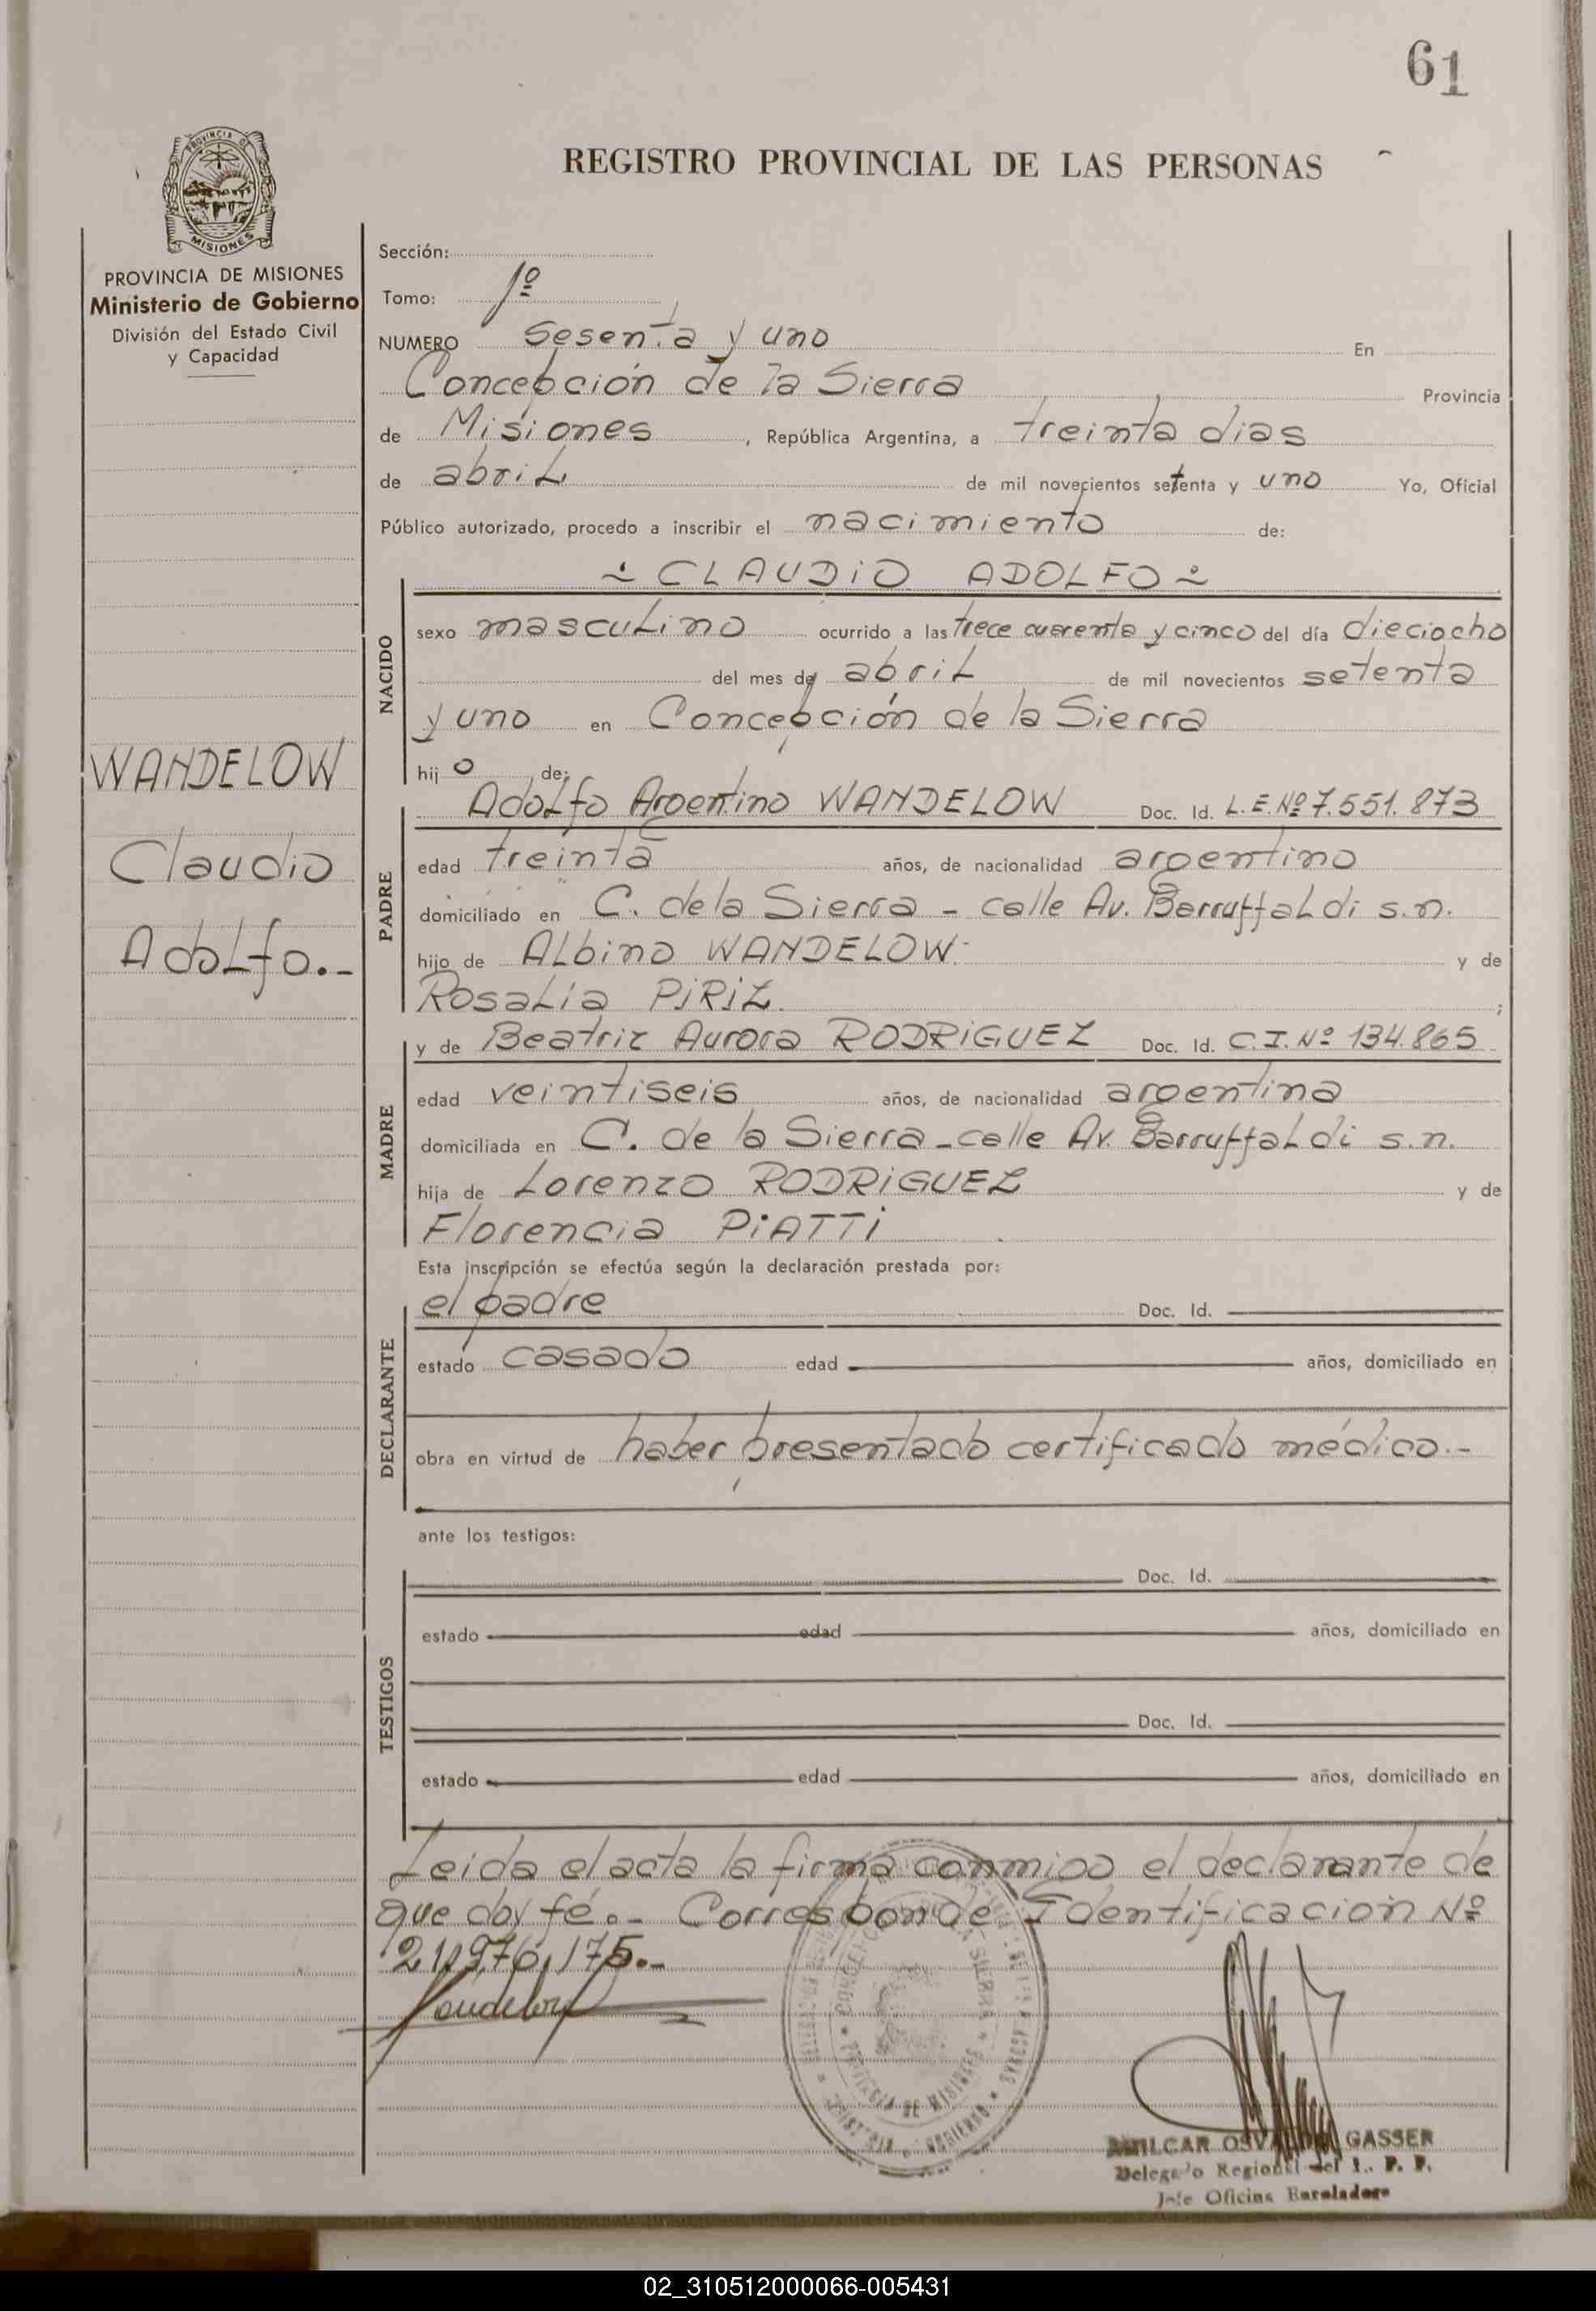 61
PROVINCIA DE
MISIONES
REGISTRO PROVINCIAL DE LAS PERSONAS
PROVINCIA DE MISIONES
Ministerio de Gobierno
División del Estado Civil
y Capacidad
WANDELOW
Claudio
Adolfo.-
Sección:
Tomo: 1º
NUMERO sesenta y uno En
Concepción de la Sierra Provincia
de Misiones, República Argentina, a treinta dias
de abril de mil novecientos setenta y uno Yo, Oficial
Público autorizado, procedo a inscribir el nacimiento de:
CLAUDIO ADOLFO
NACIDO
sexo masculino ocurrido a las trece cuarenta y cinco del día dieciocho
del mes de abril de mil novecientos setenta
y uno en Concepción de la Sierra
hijo de:
PADRE
Adolfo Argentino WANDELOW Doc. Id. L.E.Nº 7.551.873
edad treinta años, de nacionalidad argentino
domiciliado en C. de la Sierra - calle Av. Barruffaldi s.n.
hijo de Albino WANDELOW- y de
Rosalía PIRIZ. ;
MADRE
y de Beatriz Aurora RODRIGUEZ Doc. Id. C.I.Nº 134.865
edad veintiseis años, de nacionalidad argentina
domiciliada en C. de la Sierra - calle Av. Barruffaldi s.n.
hija de Lorenzo RODRIGUEZ y de
Florencia PIATTI.
Esta inscripción se efectúa según la declaración prestada por:
DECLARANTE
el padre Doc. Id.
estado casado edad años, domiciliado en
obra en virtud de haber presentado certificado médico.-
ante los testigos:
TESTIGOS
Doc. Id.
estado edad años, domiciliado en
Doc. Id.
estado edad años, domiciliado en
Leida el acta la firma conmigo el declarante de
que doy fé.- Corresponde Identificación Nº
21.976.175.-
Wandelow
CONCEPCION DE LA SIERRA
PROVINCIA DE MISIONES
AMILCAR OSVALDO GASSER
Delegado Regional del
Jefe Oficina
02_310512000066-005431